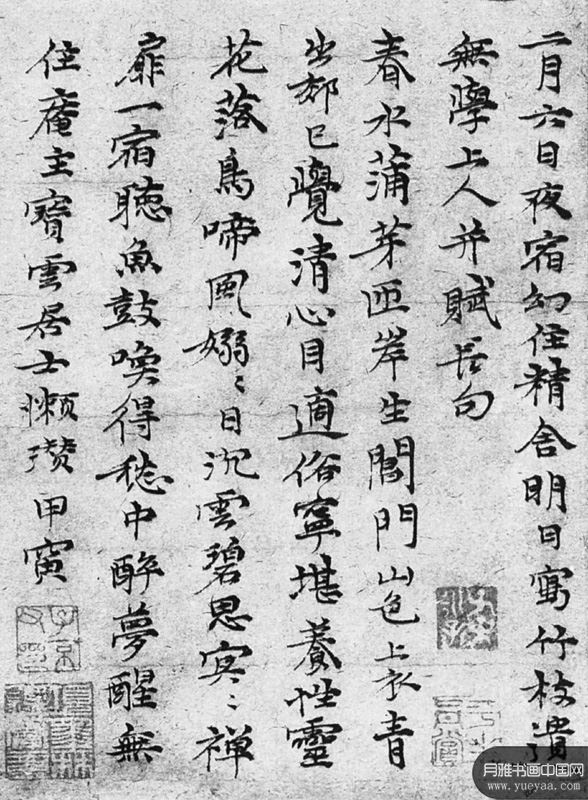 二月六日夜宿幻住精舍明日寫竹枝遺
無學上人并賦長句
春水蒲芽匝岸生閶門山色上衣青
出郊已覺清心目適俗寧堪養性靈
花落鳥啼風嫋〻日沉雲碧思冥〻禪
扉一宿聽魚鼓喚得愁中醉夢醒無
住庵主寶雲居士懶瓚甲寅
月雅书画中国网
www.yueyaa.com